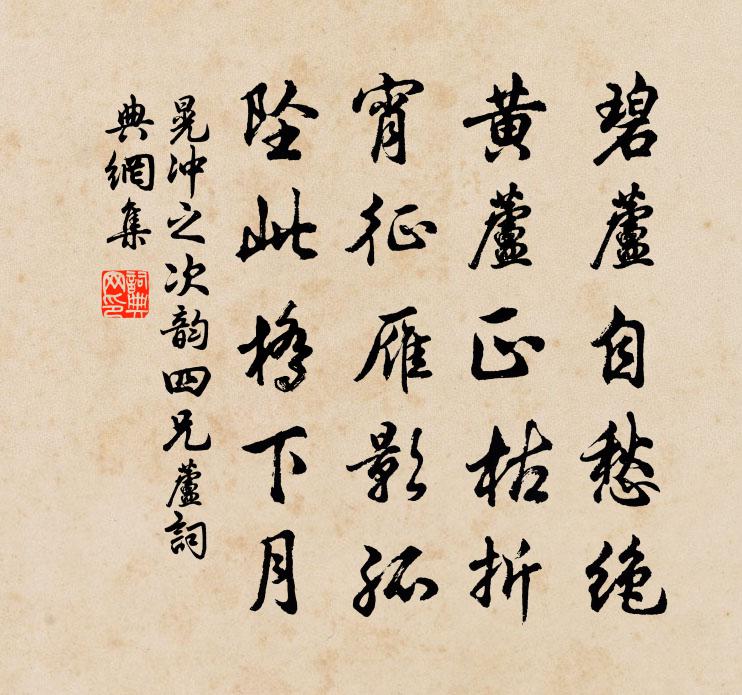 碧蘆自愁絶
黃蘆正枯折
宵征雁影孤
墜此橋下月
晁沖之次韵四兄蘆詞
典網集
詞典
网印